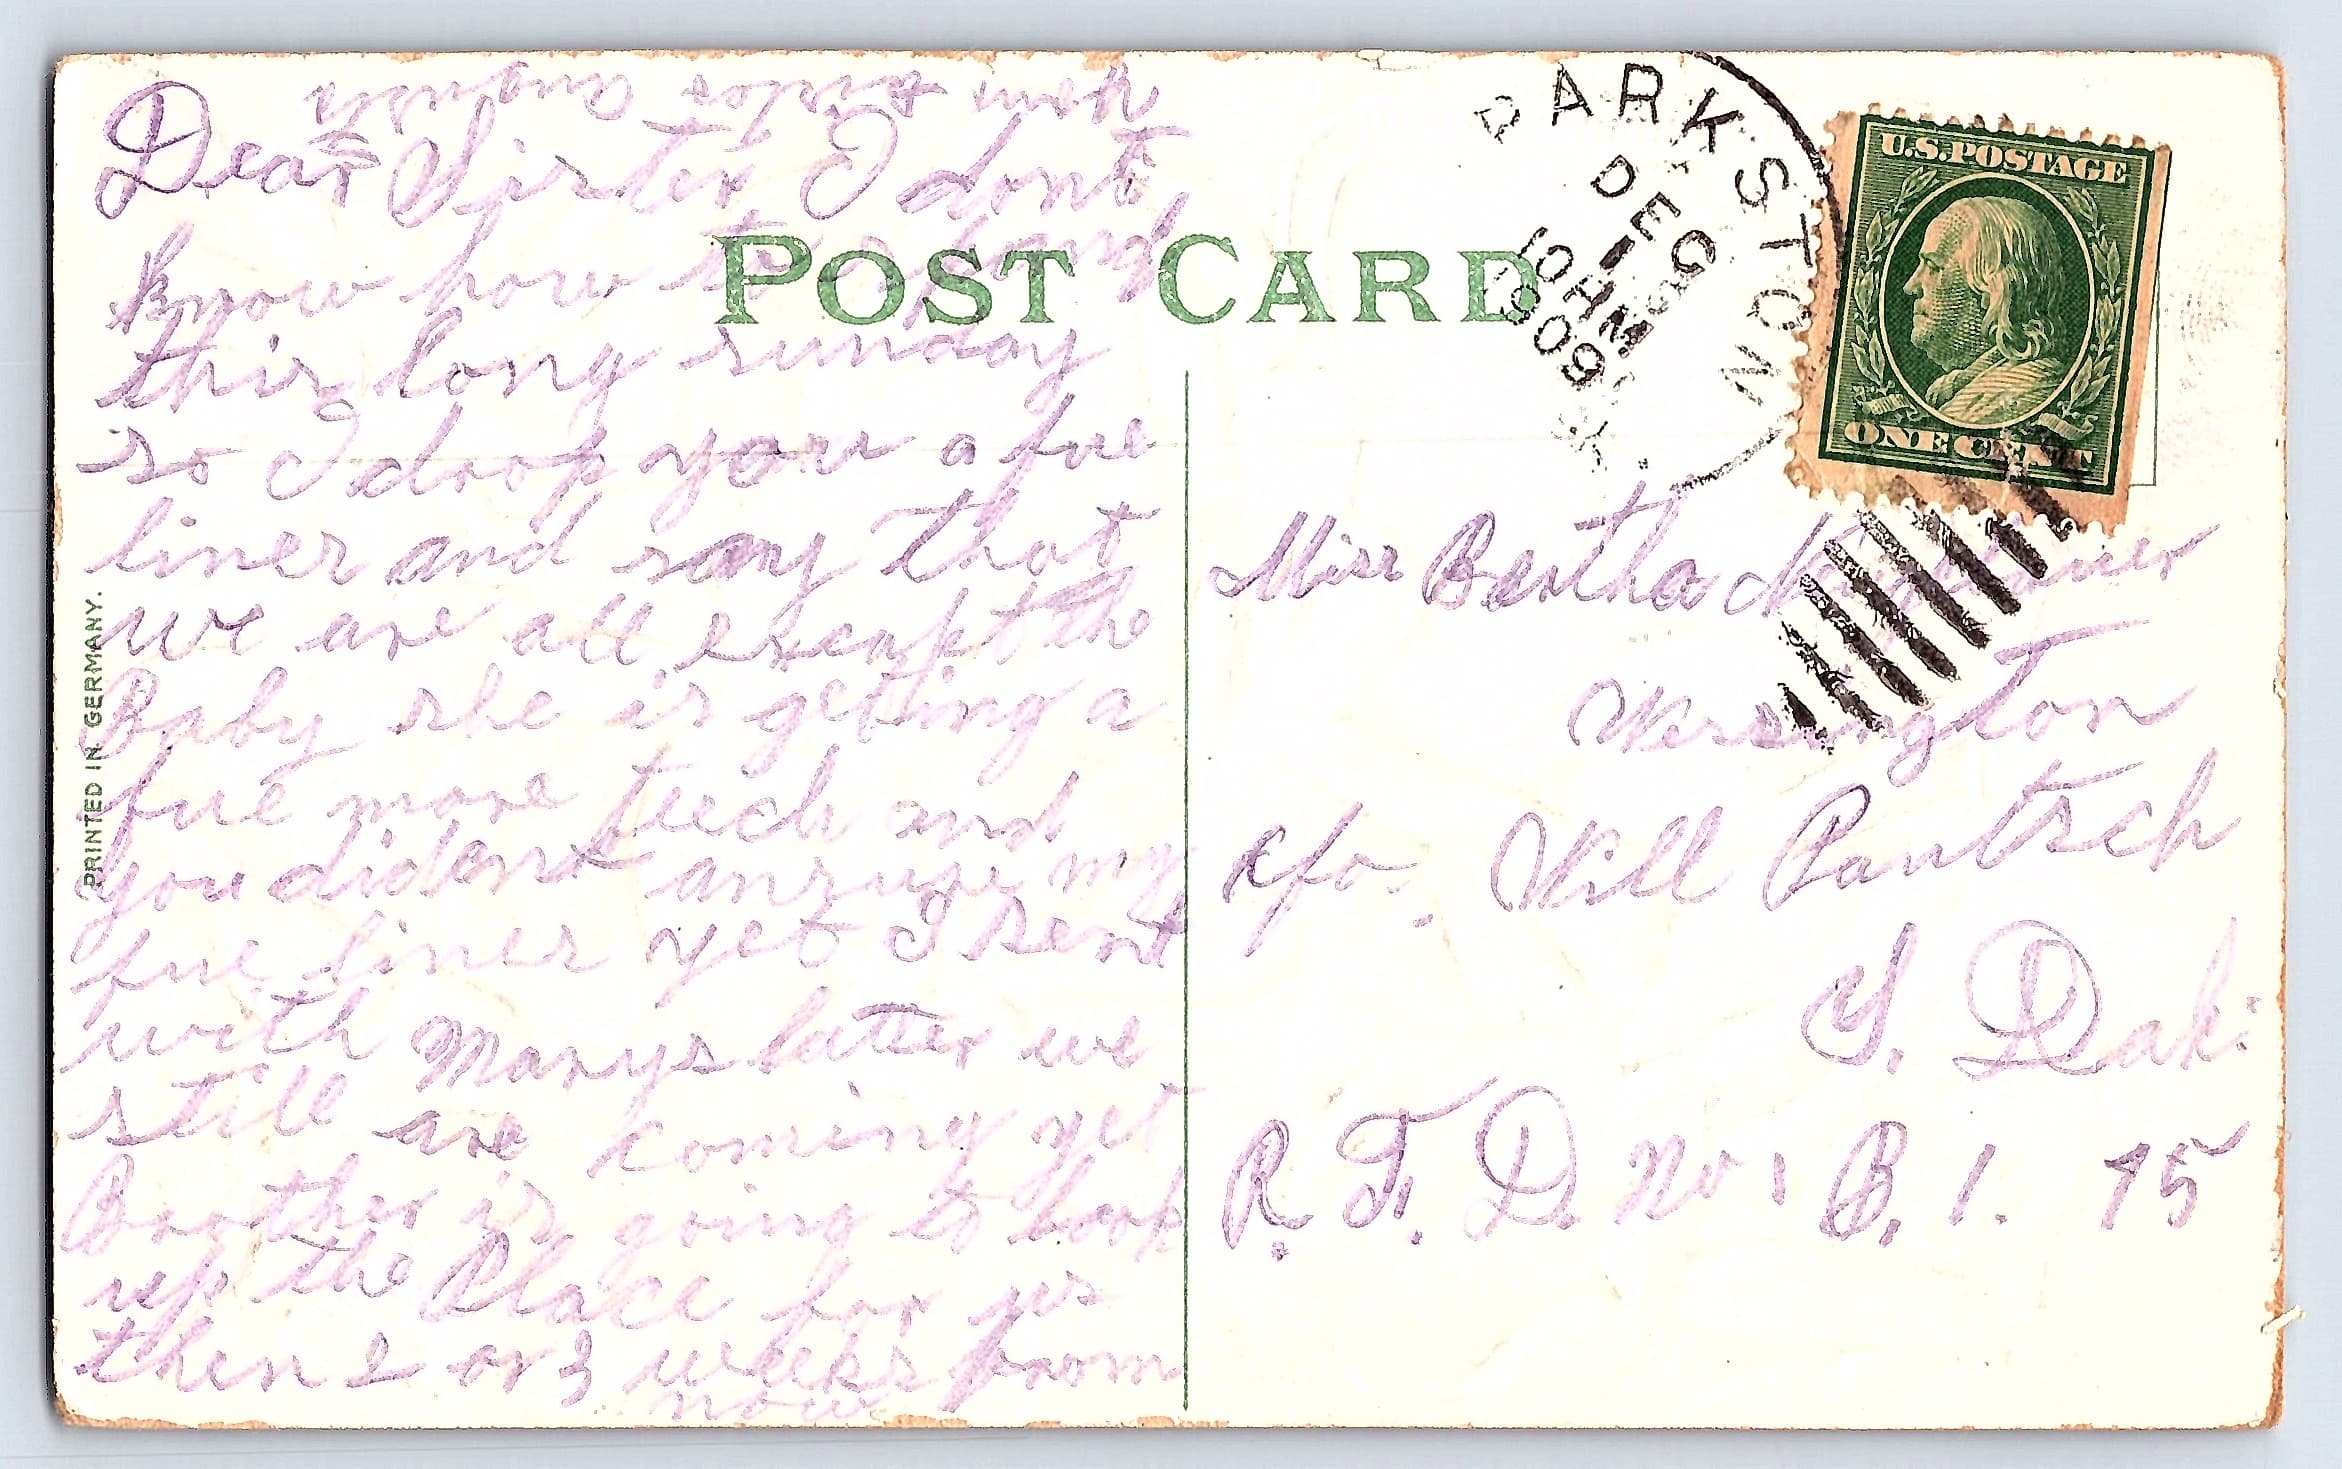 Dear Sister I dont
know how to
this long sunday
so I drop you a fue
lines and say that
we are all except the
Baby she is getting a
fue more teech and
you dident ansure my
fue lines yet I sent
with Marys latter we
still are coming yet
Brother is going to look
up the Place for us
then 2 or 3 weeks from
now
your sister
PRINTED IN GERMANY.
POST CARD
PARKSTON
DEC
1909
U.S. POSTAGE
ONE CENT
Miss Bertha
Wessington
c/o. Will Pautsch
S. Dak:
R. F. D. No 1 B. 1. 75